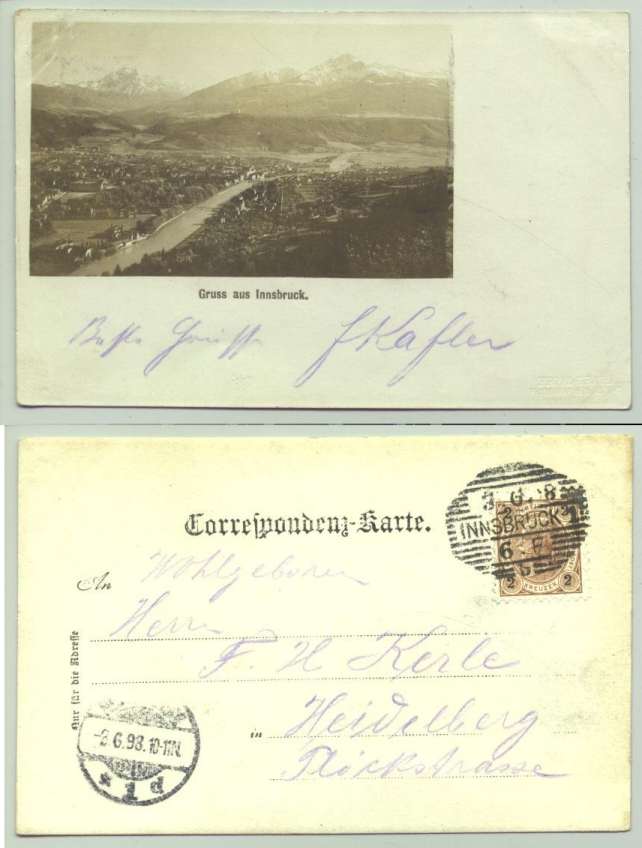 Gruss aus Innsbruck.
Beste Grüsse J Kafler
Correspondenz-Karte.
INNSBRUCK
6
2 2
KREUZER
An Wohlgeboren
Herrn
F. H Kerle
Nur für die Adresse
in Heidelberg
Plöckstrasse
-8.6.98.10-11N.
p 1 *